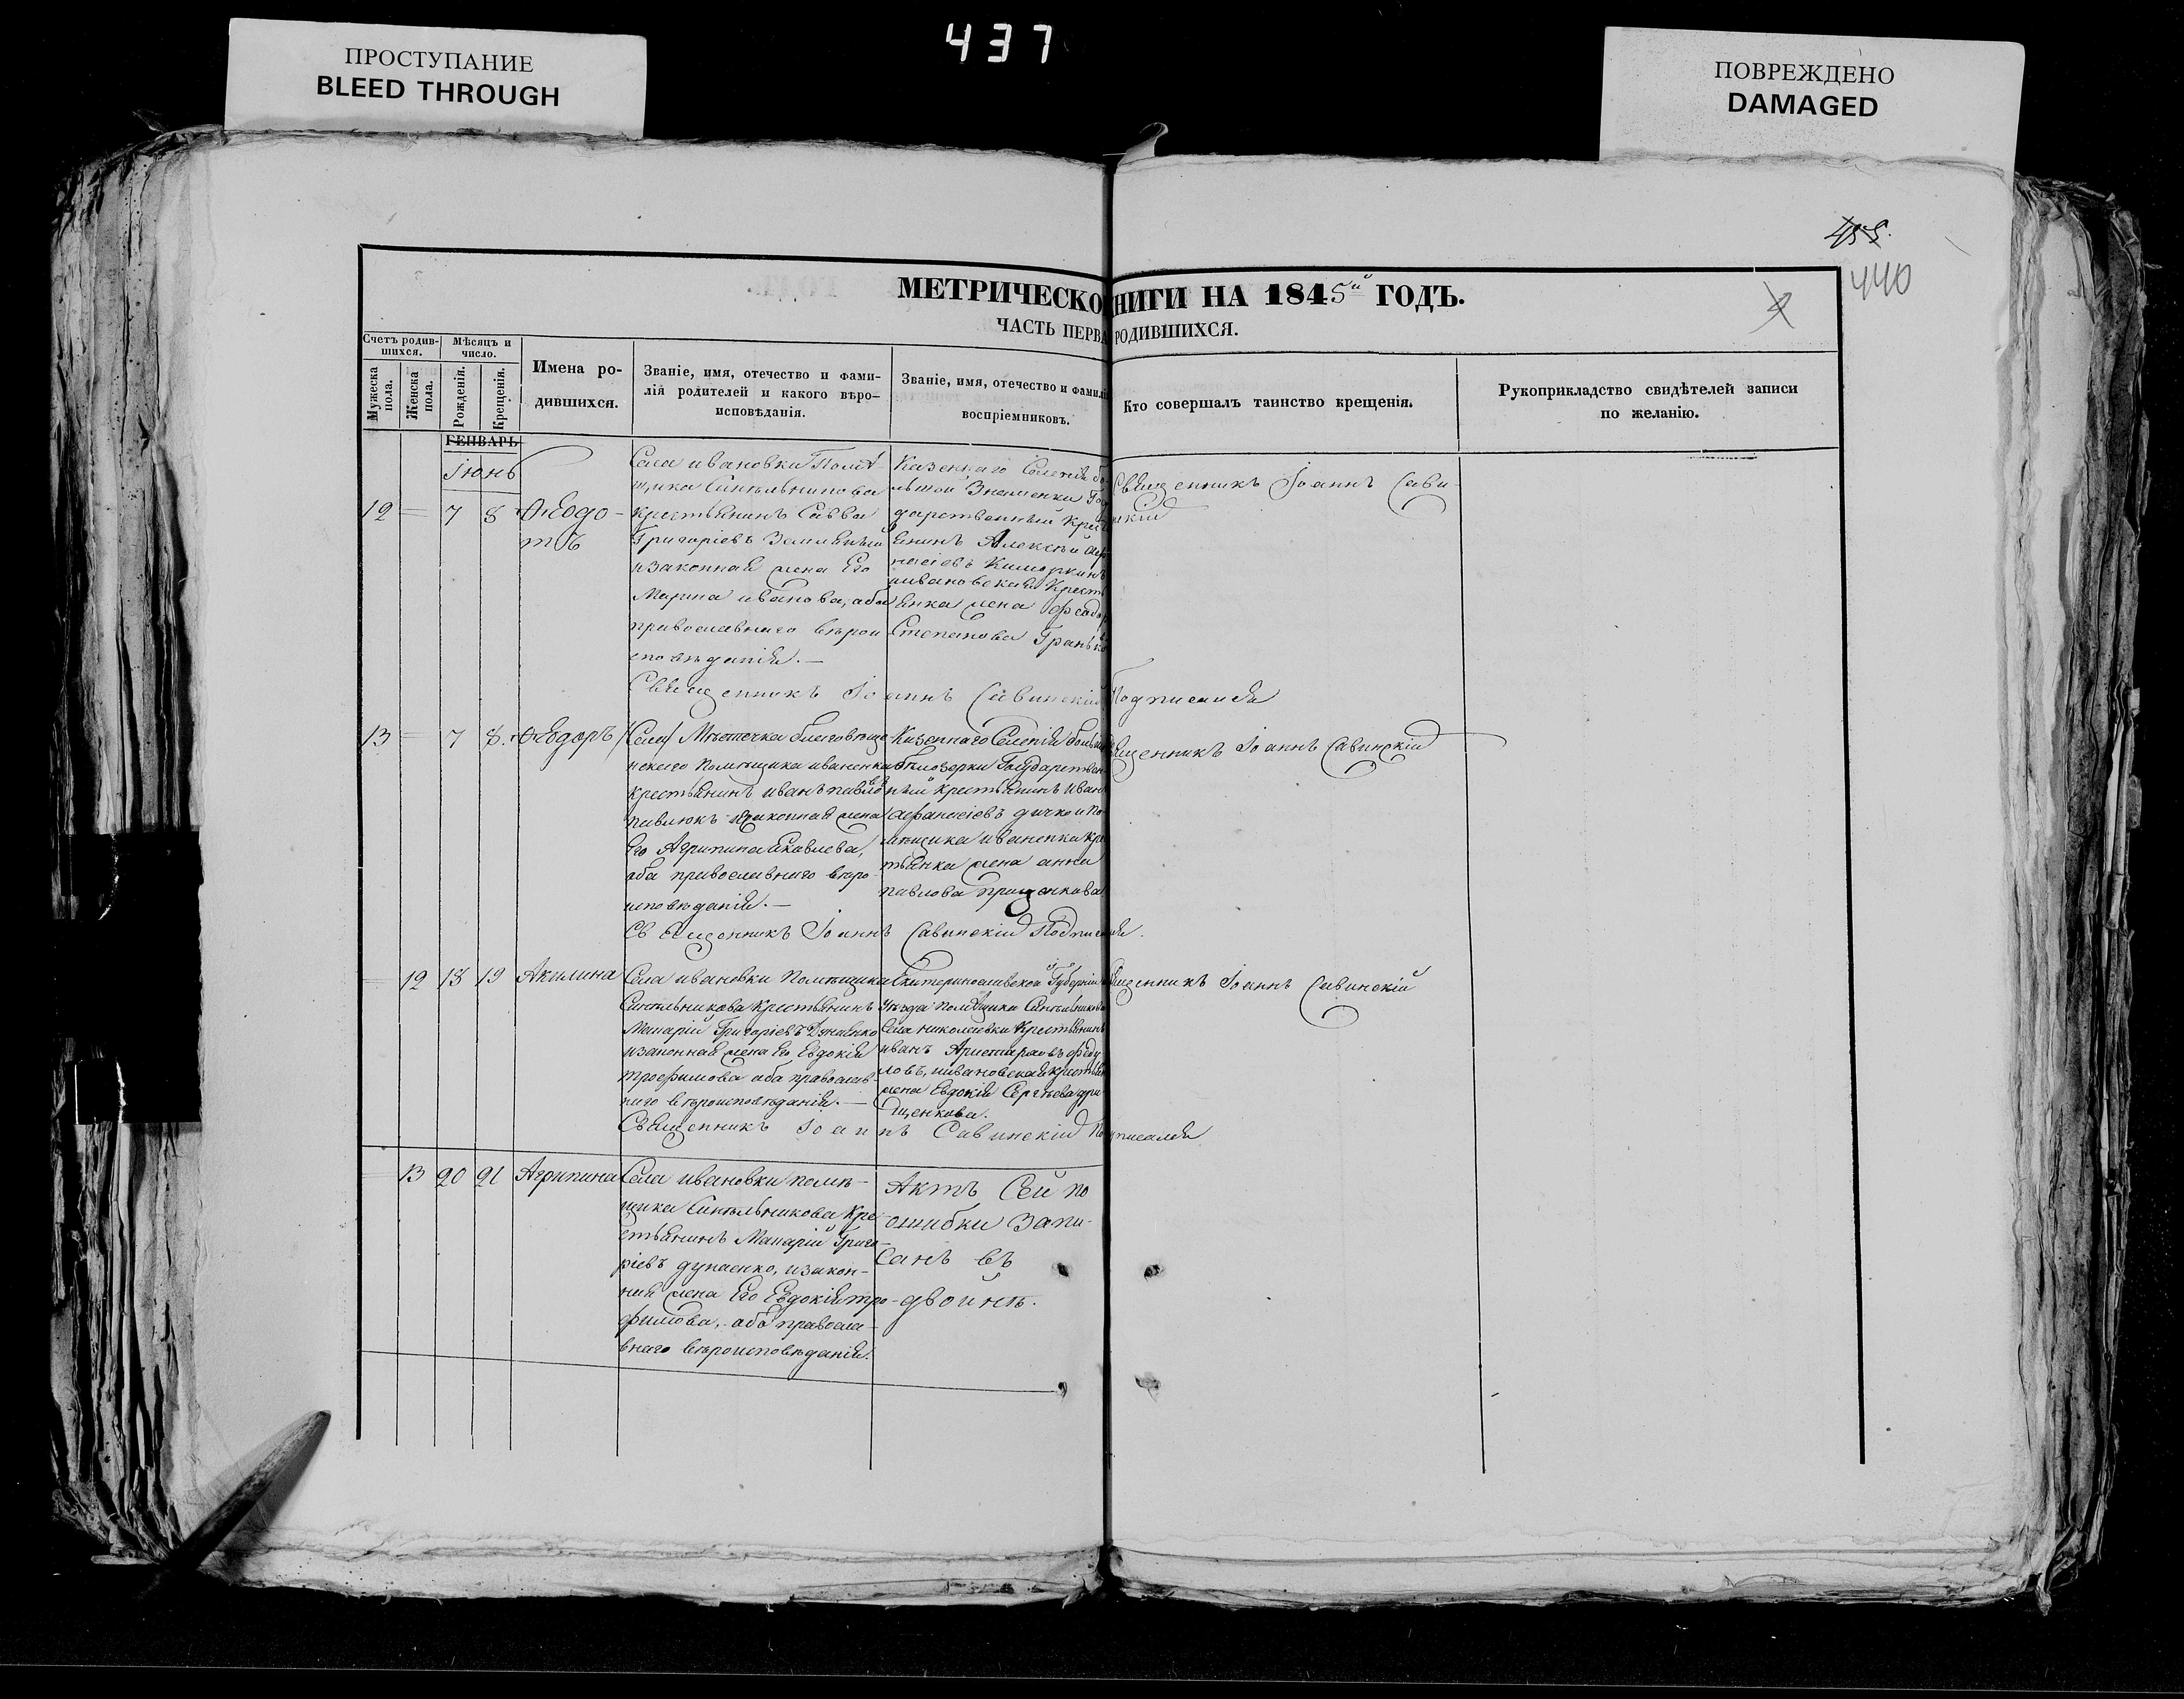 437
ПРОСТУПАНИЕ
BLEED THROUGH
ПОВРЕЖДЕНО
DAMAGED
455.
440
МЕТРИЧЕСКО НИГИ НА 1845й ГОДЪ.
ЧАСТЬ ПЕРВА РОДИВШИХСЯ.
4
Счетъ родив-
шихся.
Мужеска пола.
Женска пола.
Мѣсяцъ и
число.
Рожденія.
Крещенія.
Имена ро-
дившихся.
Званіе, имя, отечество и фами-
лія родителей и какого вѣро-
исповѣданія.
Званіе, имя, отечество и фамилі
воспріемниковъ.
Кто совершалъ таинство крещенія.
Рукоприкладство свидѣтелей записи
по желанію.
ГЕНВАРЬ
Іюнь
12 7 8 Феодо-
тъ
Села ивановки Помѣ-
щика Синельникова
крестьянинъ Савва
Григоріевъ
изаконная жена Его
Марина иванова, оба
православнаго вѣрои
сповѣданія.—
Казеннаго Селенія бо
льшой Знаменки Гос
дарственный Крес
янинъ Алексѣй Афа
насіевъ
иивановская Крест
янка жена Феодо
Степанова
Священникъ Іоаннъ Сави-
нскій
Священникъ Іоаннъ Савинскій Подписался
13 7 8. Феодоръ
Села/ Мѣстечка благовѣще
нскаго Помѣщика иваненка
крестьянинъ иванъ павловъ
павлюкъ изаконная жена
Его Агрипина Яковлева,
оба православнаго вѣро-
исповѣданія.—
Казеннаго Селенія больш
бѣлозерки Государствен
ный крестьянинъ Иван
Афанасіевъ дичко и По
мѣщика иваненка кре
тьянка жена анна
павлова прищенкова
ященникъ Іоаннъ Савинскій
Священникъ Іоаннъ Савинскій Подписался.
12 18 19 Акилина
Села ивановки Помѣщика
Синельникова Крестьянинъ
Макарій Григоріевъ Дунаенко
изаконная жена Его Евдокія
трофимова оба православ-
наго вѣроисповѣданія.—
Екатеринославской Губерніи
Уѣзда Помѣщика Синельникова
Села николаевки Крестьянинъ
иванъ Федо
ловъ, иивановская крестьян
жена Евдокія Сергѣева гри
щенкова.
ященникъ Іоаннъ Савинскій
Священникъ Іоаннъ Савинскій Подписался
13 20 21 Агрипина
Села ивановки помѣ-
щика Синельникова Кре-
стьянинъ Макарій Григо-
ріевъ дунаенко, изакон-
ная жена Его Евдокія тро-
фимова, оба правосла-
внаго вѣроисповѣданія.
Актъ Сей по
ошибки Запи-
санъ въ
двойнѣ.